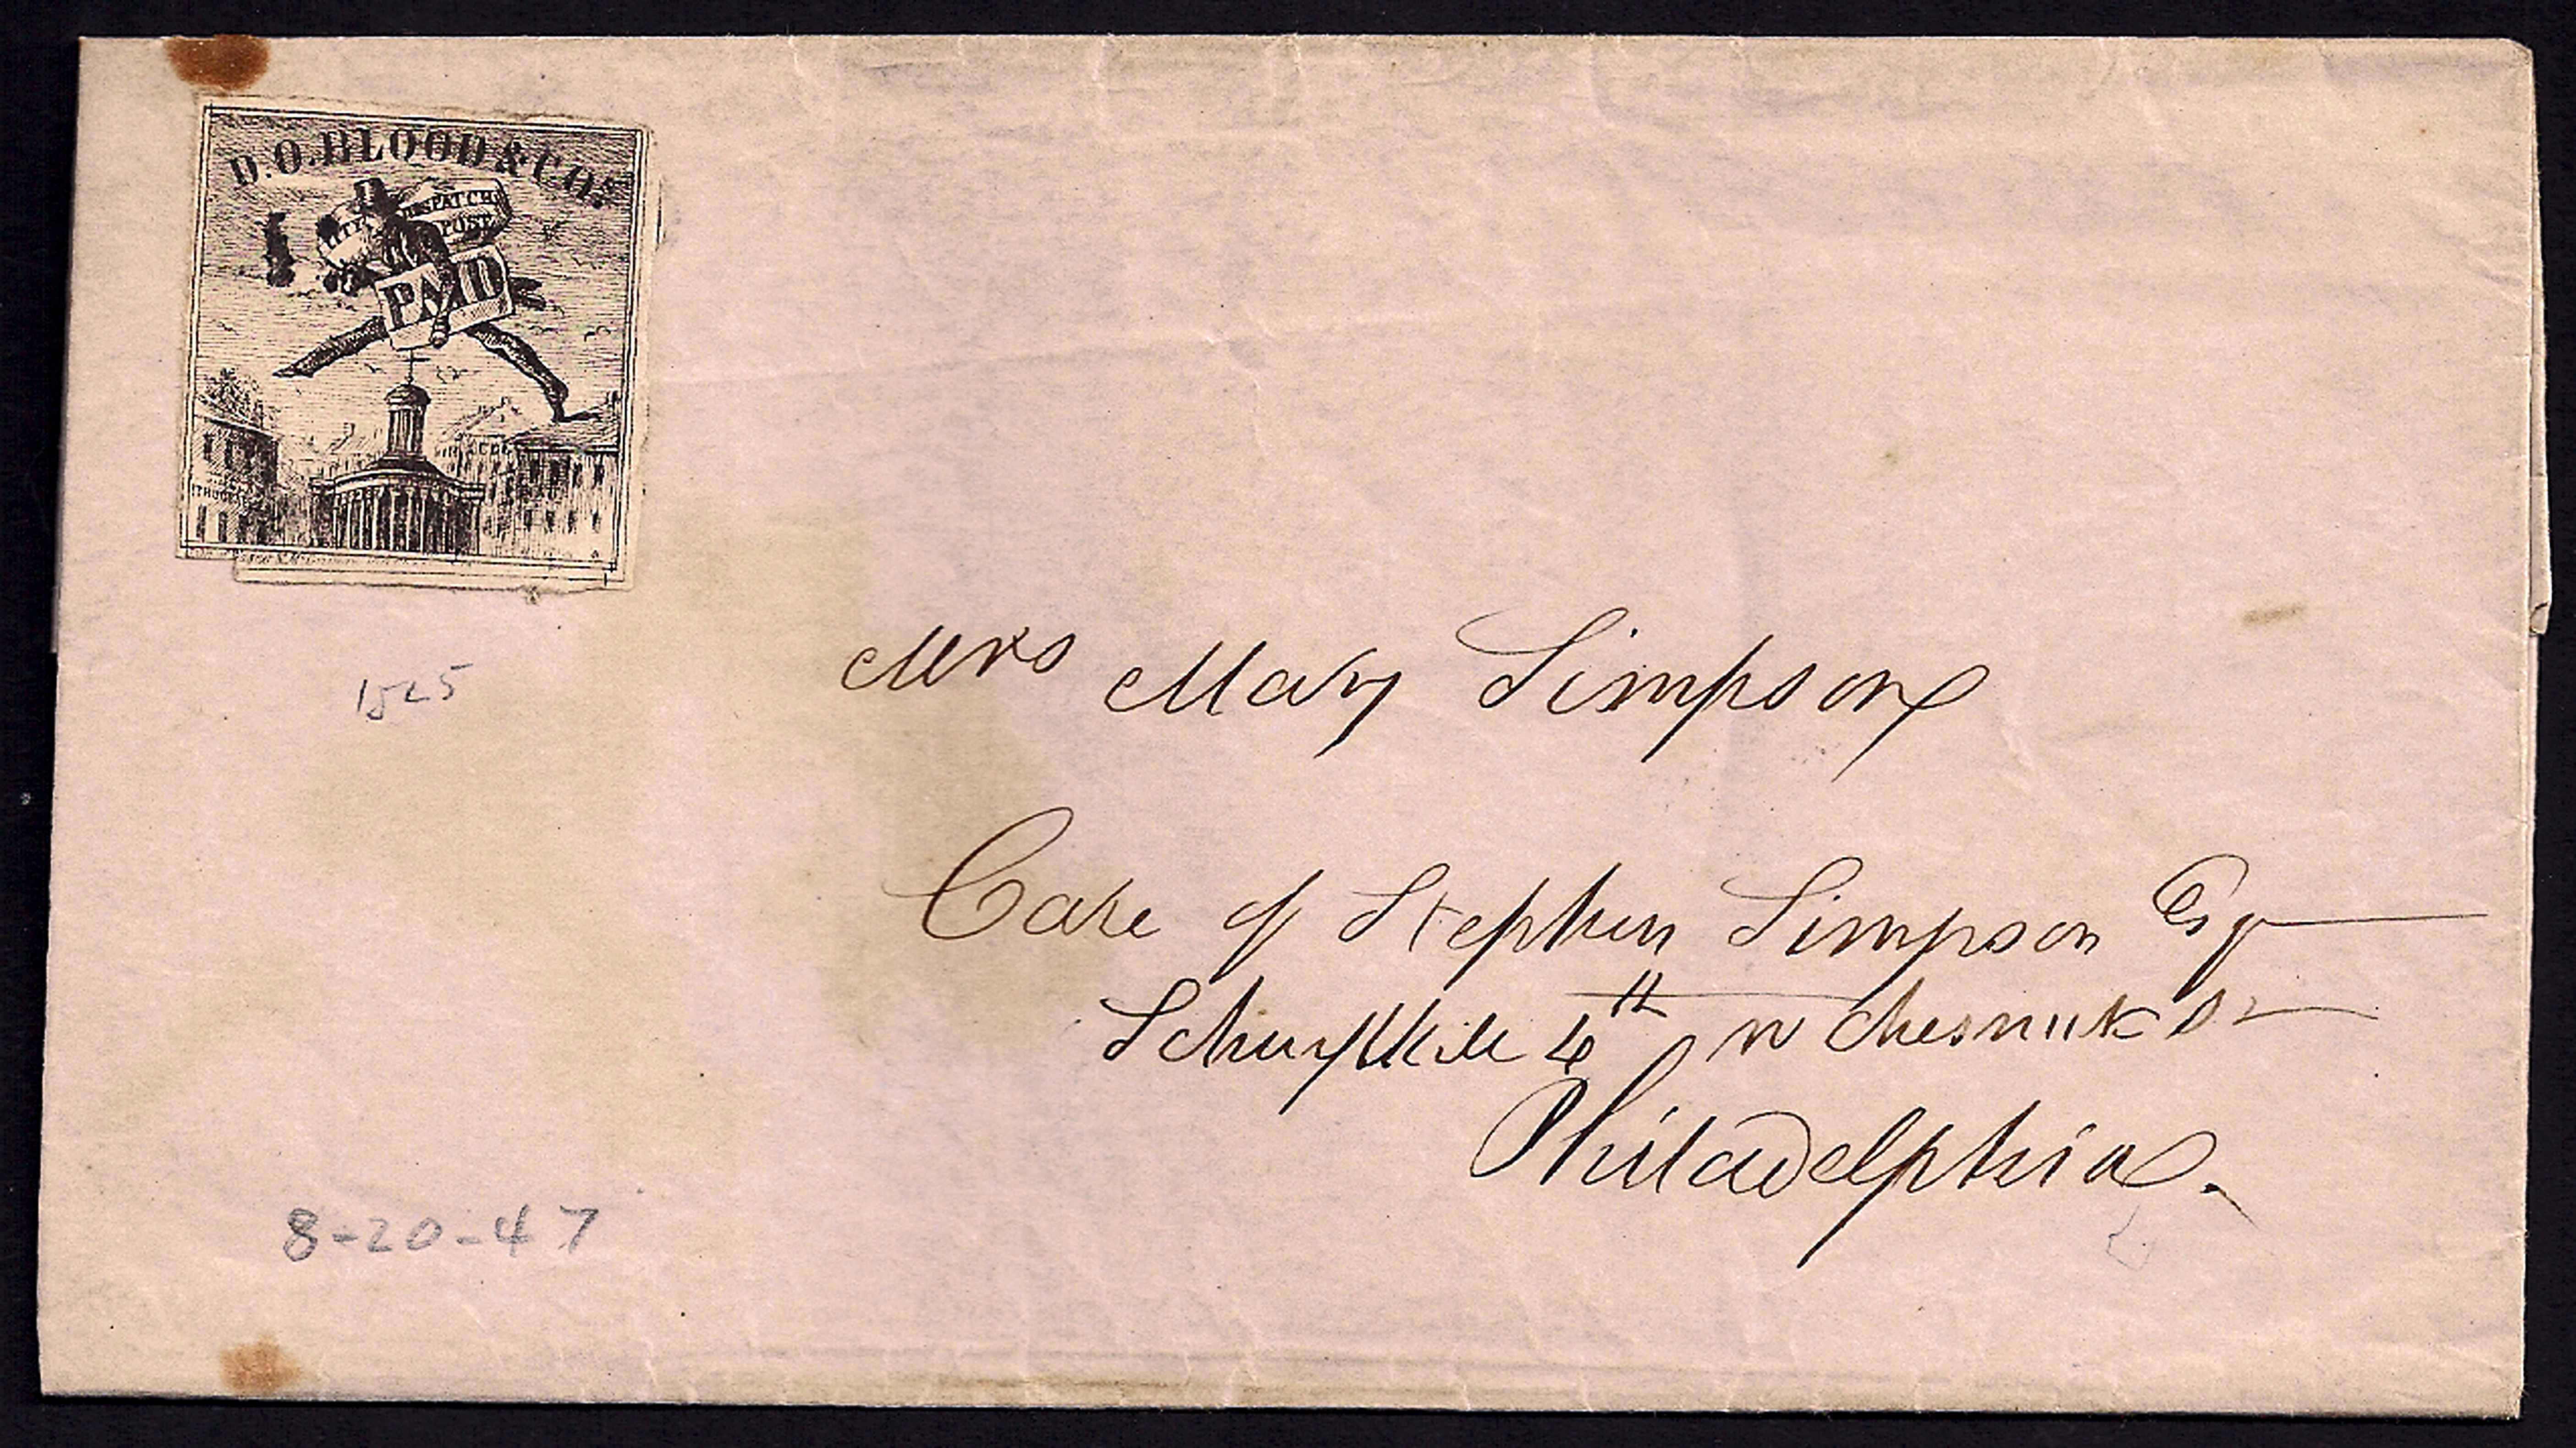 D.O.BLOOD & CO.s
CITY DESPATCH
POST
PAID
1525
Mrs Mary Simpson
Care of Stephen Simpson Esq
Schuylkill 6th n Chesnut St
Philadelphia.
8-20-47